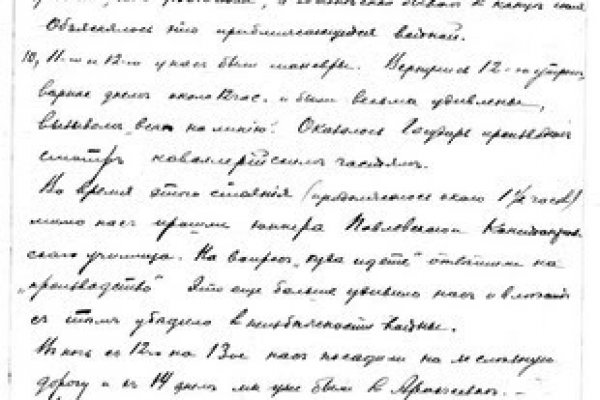 Объяснялось это приближающейся войной.
10, 11-го и 12-го у нас были маневры. Вернулись 12-го утром,
вернее днем около 12 час. и были весьма удивлены,
вызовом „всех на линию“. Оказалось Государь производит
смотр кавалерийским частям.
Во время этого стояния (продолжалось около 1½ часов)
мимо нас прошли юнкера Павловского
ского училища. На вопрос „куда идете“ ответили на
„производство“ Это еще больше удивило нас и
с тем убедило в неизбежности войны.
В ночь с 12го на 13ое нас посадили на железную
дорогу и с 14 днем мы уже были в